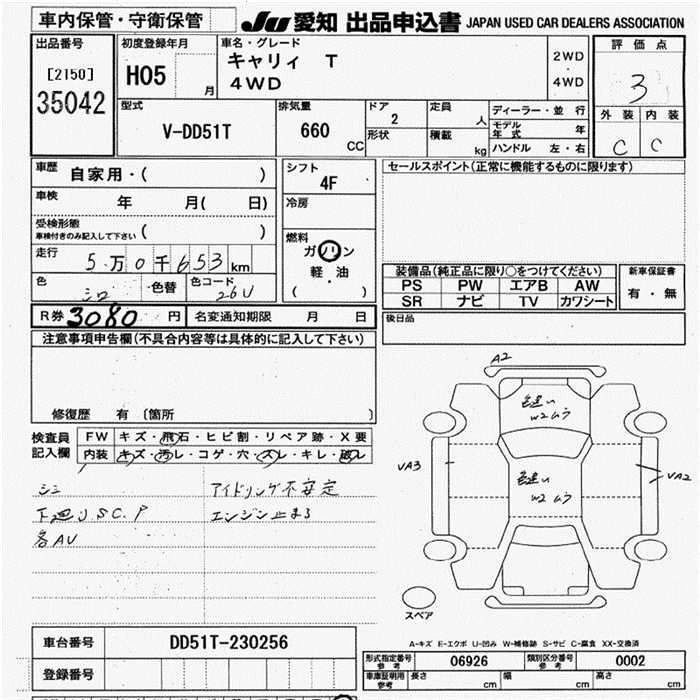 車内保管・守衛保管
JU 愛知 出品申込書 JAPAN USED CAR DEALERS ASSOCIATION
出品番号
[2150]
35042
初度登録年月
H05 月
車名・グレード
キャリィ T
4WD
2WD
・
4WD
評価点
3
外装 内装
C C
型式
V-DD51T
排気量
660 CC
ドア
2
形状
定員 人
積載 kg
ディーラー・並行
モデル年式 年
ハンドル 左・右
車歴 自家用・( )
車検 年 月( 日)
受検形態
車検付きのみ記入して下さい ( )
走行 5万0千653km
色 シロ 色替 色コード 26U
シフト
4F
冷房
燃料
ガソリン
軽・油
( )
セールスポイント(正常に機能するものに限ります)
装備品(純正品に限り○をつけてください)
PS PW エアB AW
SR ナビ TV カワシート
新車保証書
有・無
R券 3080 円 名変通知期限 月 日
後日品
注意事項申告欄(不具合内容等は具体的に記入して下さい)
修復歴 有〔箇所 〕
検査員記入欄
FW キズ・飛石・ヒビ割・リペア跡・X要
内装 キズ・汚レ・コゲ・穴・スレ・キレ・破レ
シミ アイドリング不安定
下廻りS.C.P エンジン止まる
各AU
A2
色違い
W2ムラ
VA3
色違い
W2ムラ
VA2
スペア
A-キズ E-エクボ U-凹み W-補修跡 S-サビ C-腐食 XX-交換済
車台番号 DD51T-230256
登録番号
形式指定番号 参考 06926 類別区分番号 参考 0002
車庫証明用 参考 長さ cm 幅 cm 高さ cm